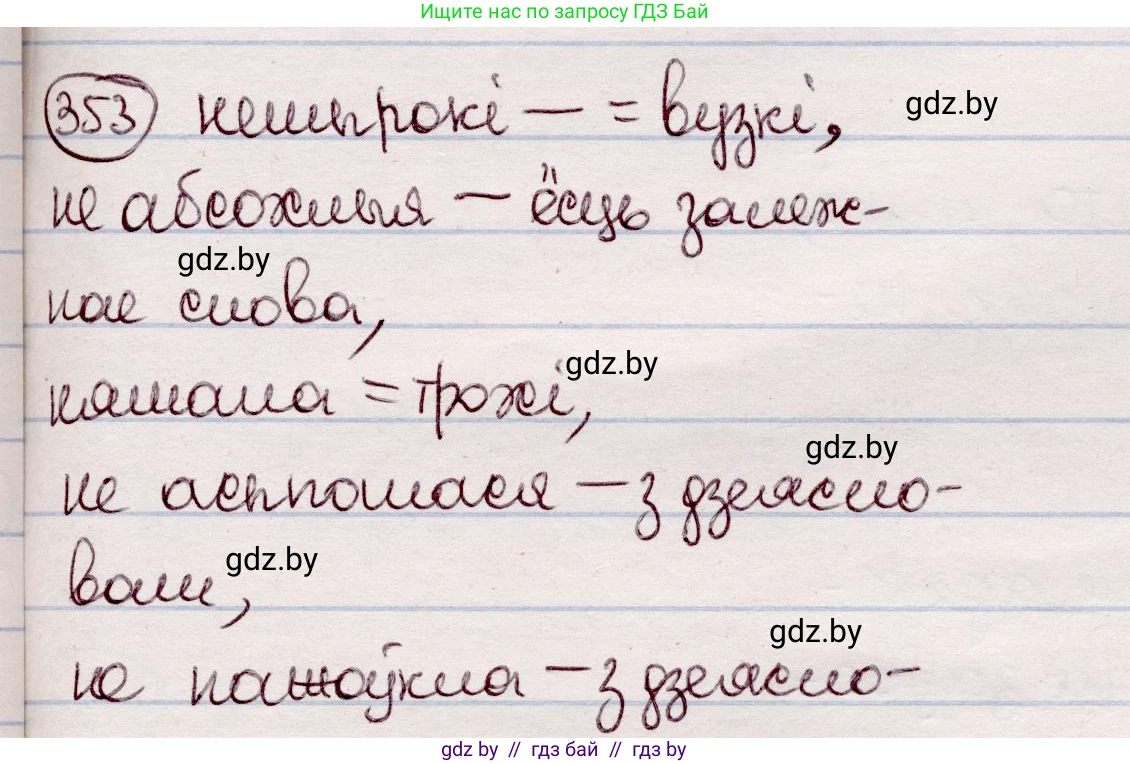 Ищите нас по запросу ГДЗ Бай
353 нешырокі — = вузкі, gdz.by
не абсохлыя — ёсць залеж-
gdz.by
нае слова,
gdz.by
нямала = трохі,
gdz.by
не асыпалася — з дзеясло-
gdz.by
вам,
gdz.by
не пажоўкла — з дзеясло-
gdz.by // гдз бай // гдз by